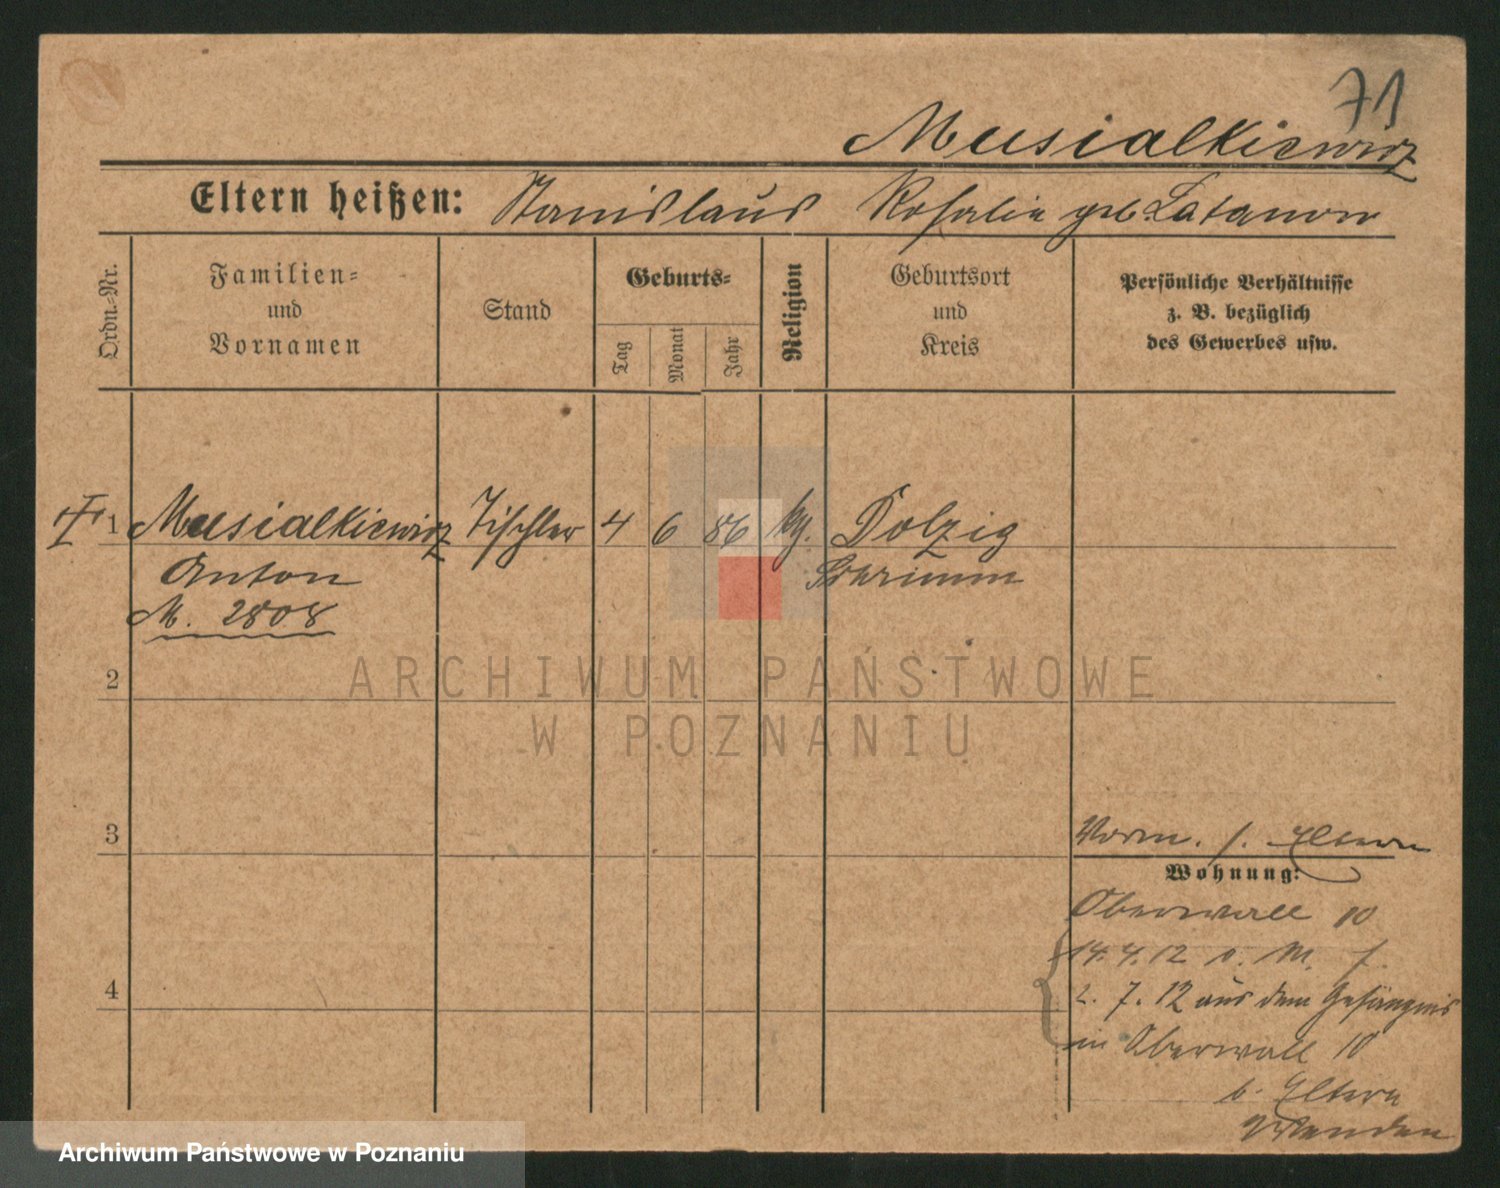 71
Musialkiewicz
Eltern heißen: Stanislaus Rosalie geb Latanow
Ordn.-Nr.
Familien-
und
Vornamen
Stand
Geburts-
Tag
Monat
Jahr
Religion
Geburtsort
und
Kreis
Persönliche Verhältnisse
z. B. bezüglich
des Gewerbes usw.
1 Musialkiewicz Tischler 4 6 86 kg. Dolzig
Anton Schrimm
M. 2808
2
3
4
Vorm. s. Eltern
Wohnung:
Oberwall 10
14. 4. 12 v. M. f.
2. 7. 12 aus dem Gefängnis
in Oberwall 10
b. Eltern
Wenden
ARCHIWUM PAŃSTWOWE
W POZNANIU
Archiwum Państwowe w Poznaniu